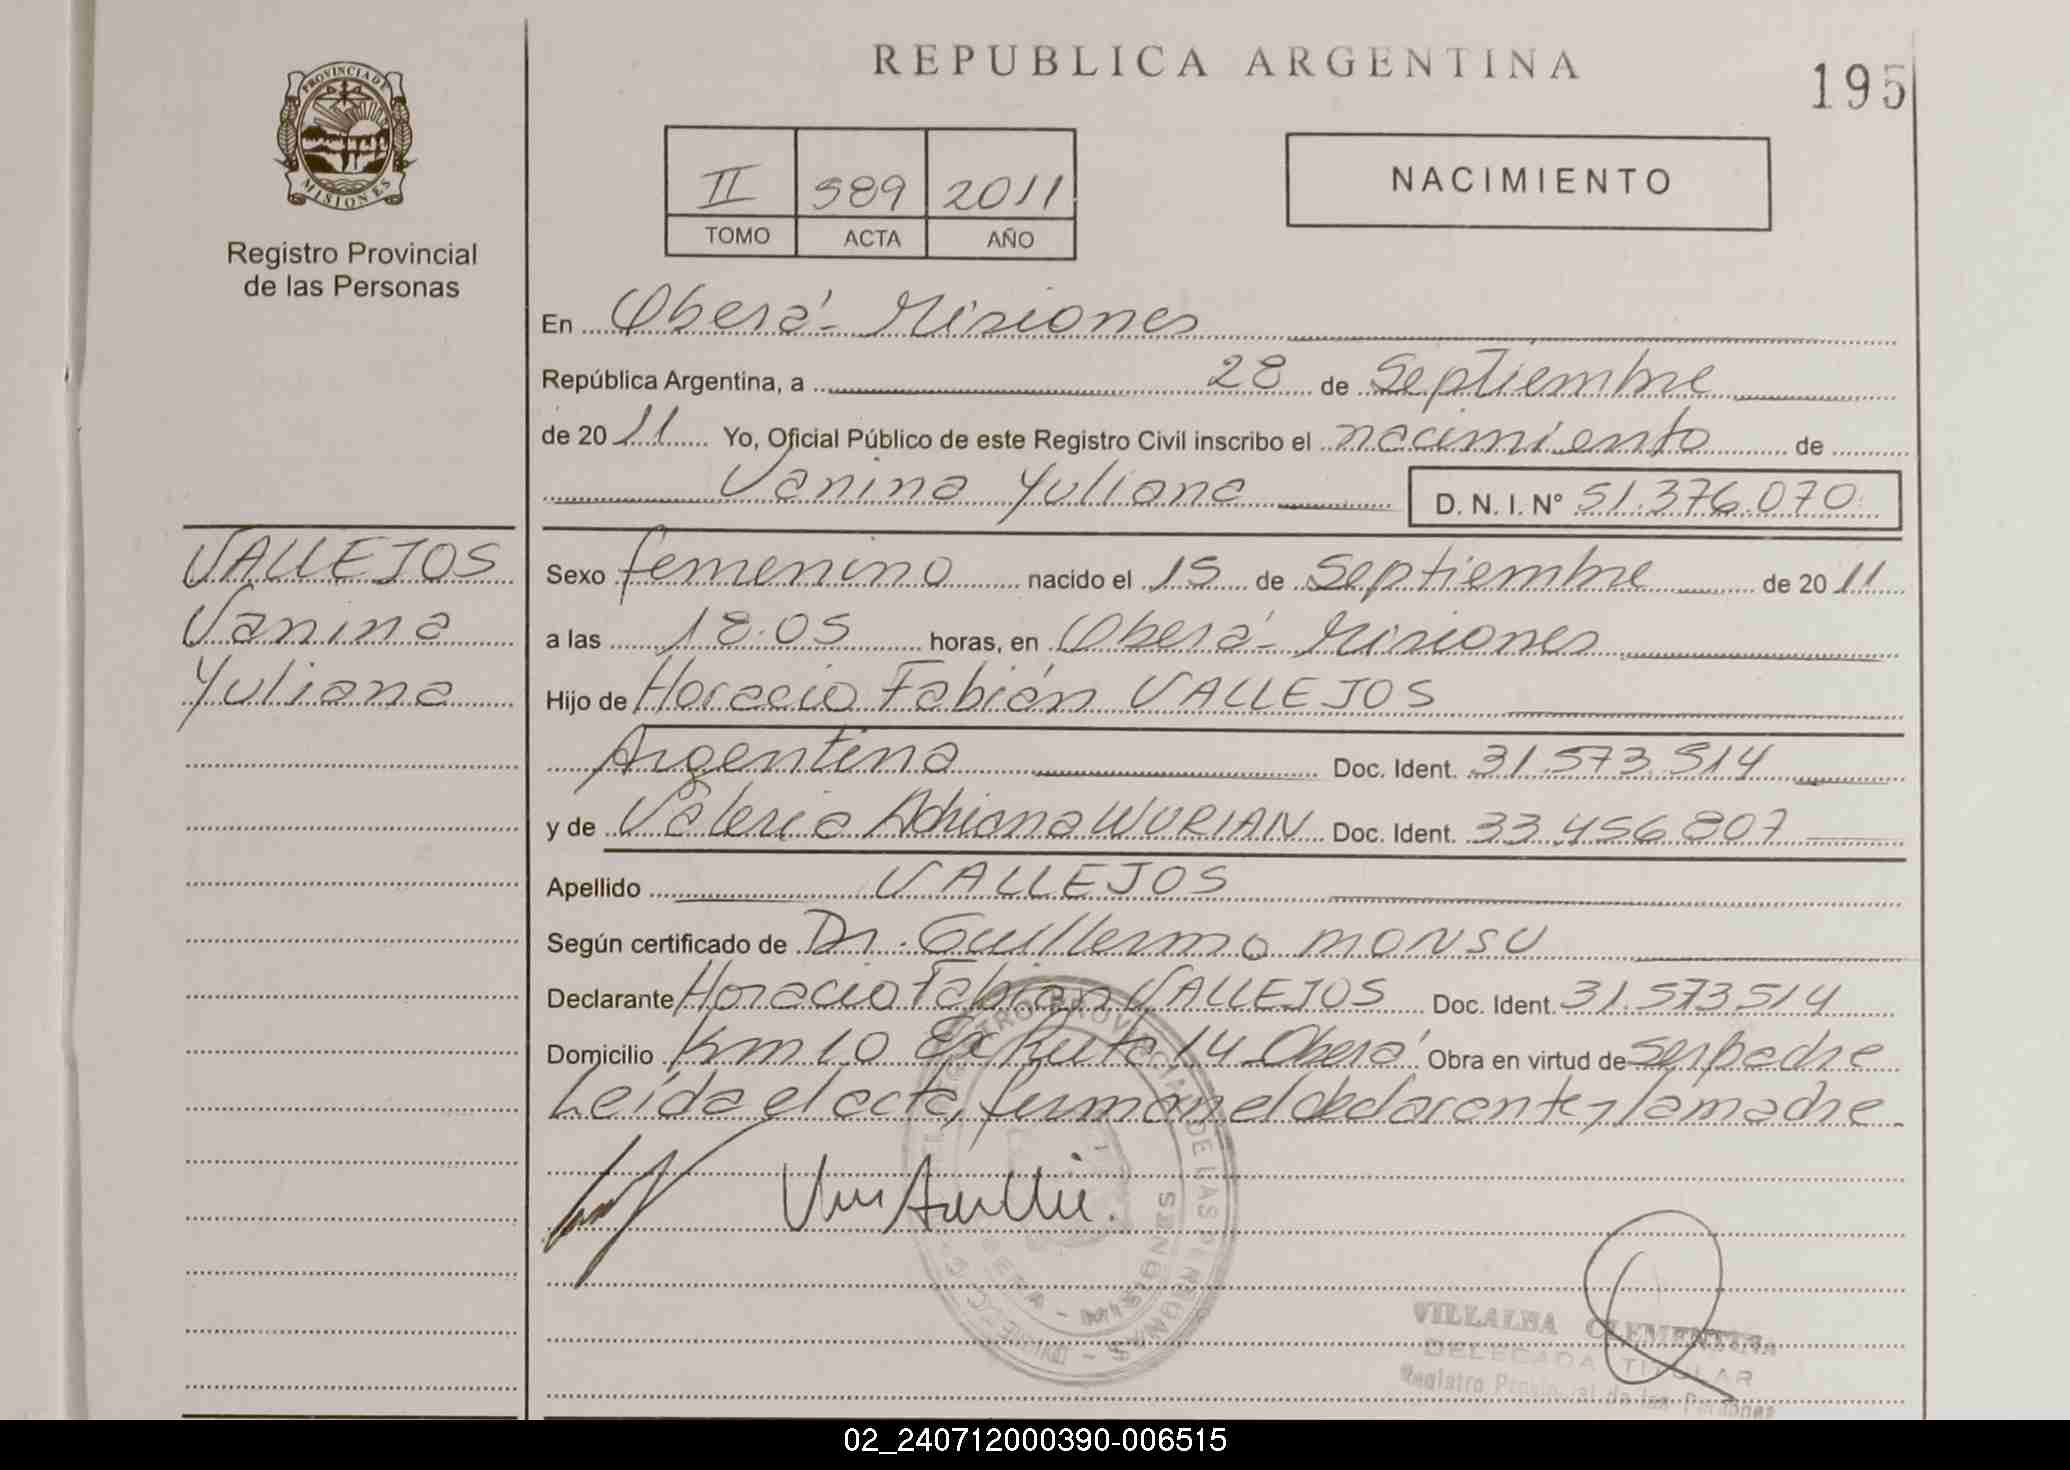 REPUBLICA ARGENTINA
195
PROVINCIA DE MISIONES
Registro Provincial
de las Personas
II 589 2011
TOMO ACTA AÑO
NACIMIENTO
En Oberá - Misiones
República Argentina, a 28 de Septiembre
de 2011 Yo, Oficial Público de este Registro Civil inscribo el nacimiento de
Vanina Yuliana D. N. I. N° 51.376.070
VALLEJOS
Vanina
Yuliana
Sexo femenino nacido el 15 de Septiembre de 2011
a las 18:05 horas, en Oberá - Misiones
Hijo de Horacio Fabián VALLEJOS
Argentina Doc. Ident. 31.573.514
y de Valeria Adriana WURIAN Doc. Ident. 33.456.807
Apellido VALLEJOS
Según certificado de Dr. Guillermo MONSU
Declarante Horacio Fabián VALLEJOS Doc. Ident. 31.573.514
Domicilio Km 10 Ex Ruta 14 Oberá Obra en virtud de ser padre
Leída el acta, firman el declarante y la madre
VILLALBA CLEMENTINA
DELEGADA TITULAR
Registro Provincial de las Personas
02_240712000390-006515